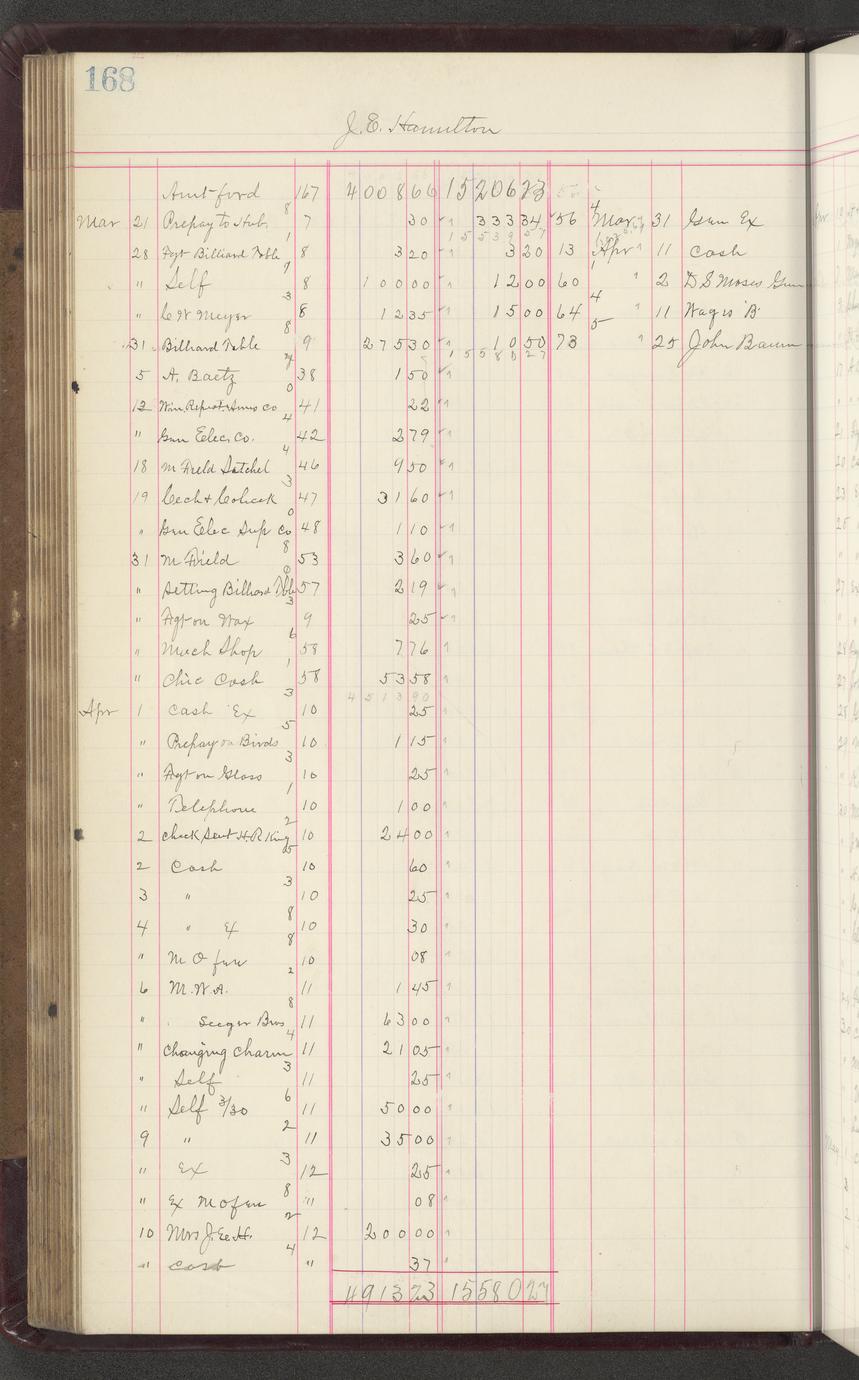 168
J.E. Hamilton
Amt ford 167 400866 1520623
Mar 21 Prepay to Hub 7 30 33334 56 Mar 31 Gen Ex
1553957
28 Fgt Billiard Table 8 320 320 13 Apr 11 Cash
" Self 8 10000 1200 60 " 2 D S Moses Gun
" C W Meyer 8 1235 1500 64 " 11 Wages "B"
31 Billiard Table 9 27530 1050 73 " 25 John Baum
1558027
5 A. Baetz 38 150
12 Win. Repeat. Arms Co 41 22
" Gen Elec. Co. 42 279
18 M Field Satchel 46 950
19 Cech & Cohcek 47 3160
" Gen Elec Sup Co 48 110
31 M Field 53 360
" Setting Billiard Tble 57 219
" Fgt on Wax 9 25
" Mach Shop 58 776
" Chic Cash 58 5358
451390
Apr 1 Cash Ex 10 25
" Prepay on Birds 10 115
" Fgt on Glass 10 25
" Telephone 10 100
2 Check Sent H.R King 10 2400
2 Cash 10 60
3 " 10 25
4 " Ex 10 30
" M O fee 10 08
6 M.W.A. 11 145
" Seeger Bros 11 6300
" Changing Charm 11 2105
" Self 11 25
" Self 3/30 11 5000
9 " 11 3500
" Ex 12 25
" Ex M O fee " 08
10 Mrs J.E.H. 12 20000
" Cash " 37
491323 1558027